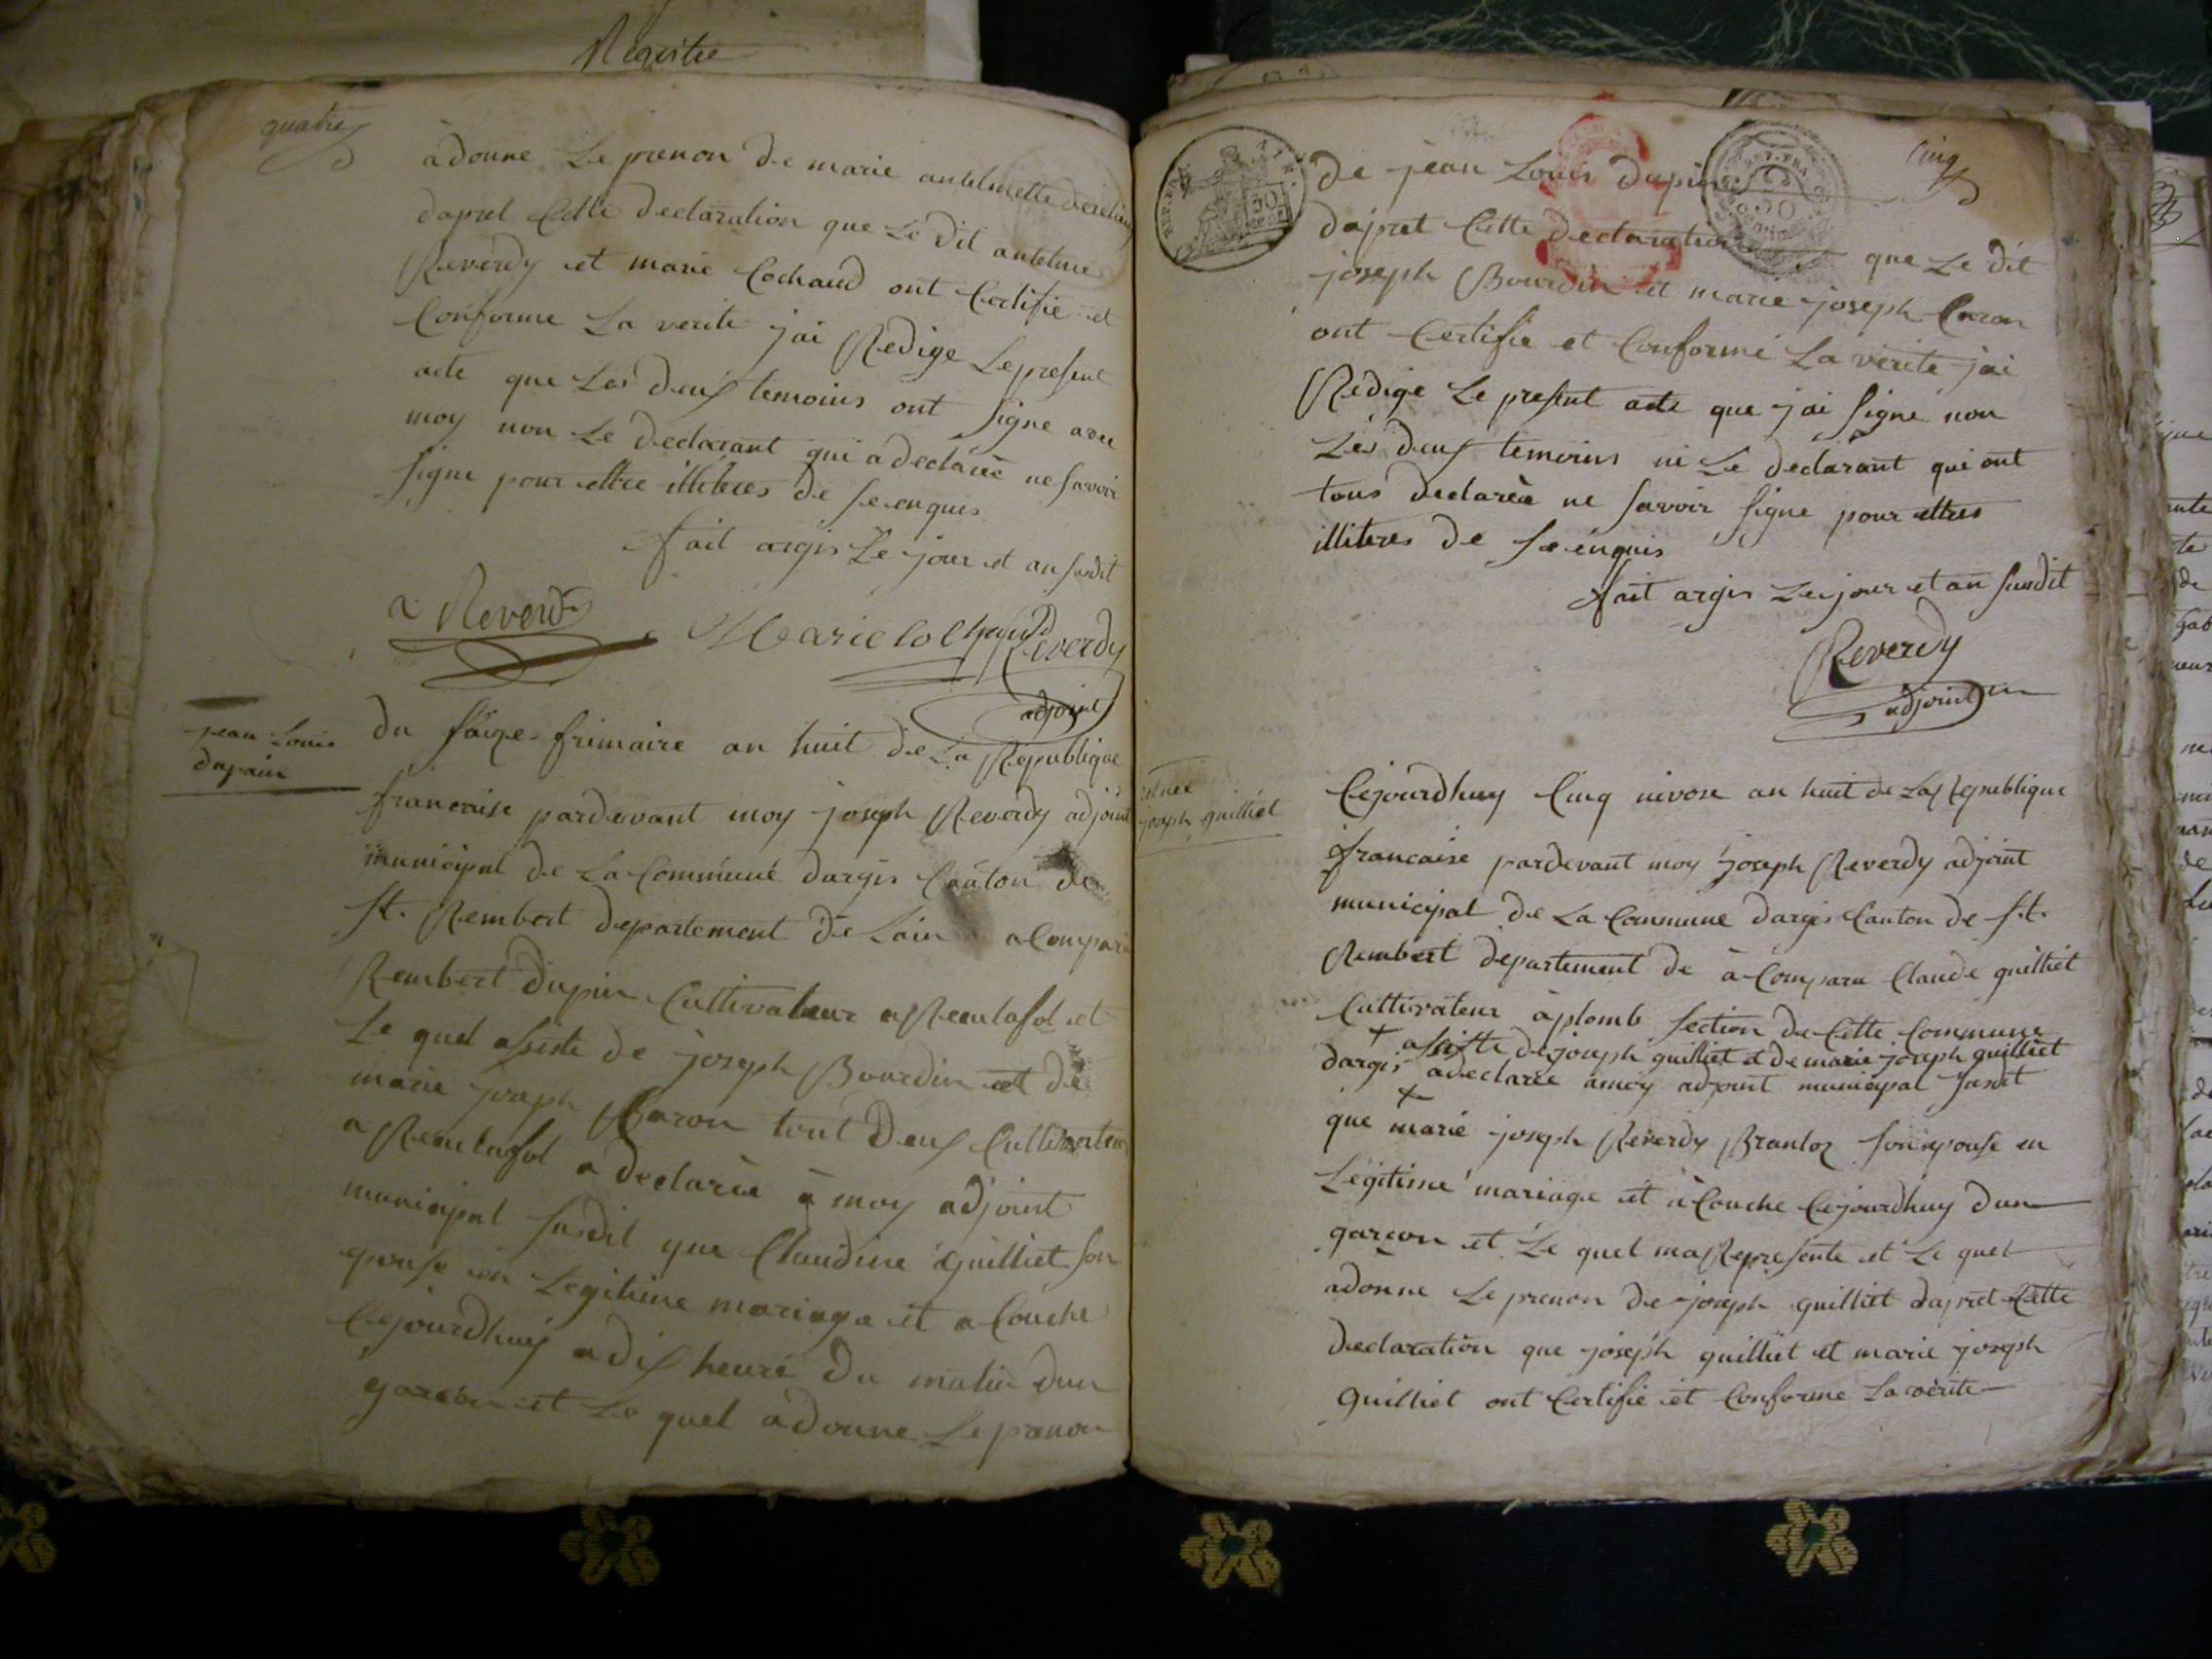 Registre
quatre
à donne Le prenon de marie antelmette
dapret Cette declaration que Le dit antelme
Reverdy et marie Cochaud ont Certifie et
Conforme La verite jai Redige Le present
acte que Les deux temoins ont signe avec
moy non Le declarant qui a declarè ne savoir
signe pour ettre illiteres de se enquis
fait argis Le jour et an susdit
a Reverdy
Marie Cochaud
Reverdy
adjoint
jean Louis
dupain
du saize frimaire an huit de La Republique
francaise pardevant moy joseph Reverdy adjoint
municipal de La Commune dargis Canton de
st. Rembert departement de Lain a Comparu
Rembert dupin Cultivateur a Reculafol et
Le quel assiste de joseph Bourdin et de
marie joseph Caron tout deux Cultivateur
a Reculafol a declarèe à moy adjoint
municipal susdit que Claudine guilliet son
epouse en Legitime mariage et a Couche
Cejourdhuy a dix heure du matin dun
garcon et Le quel a donne Le prenon
cinq
REP. FRA.
50
de jean Louis dupin
dapret Cette declaration que Le dit
joseph Bourdin et marie joseph Caron
ont Certifie et Conforme La verite jai
Redige Le present acte que jai signe non
Les deux temoins ni Le declarant qui ont
tous declarèe ne savoir signe pour ettres
illiteres de se enquis
fait argis Le jour et an susdit
Reverdy
adjoint
joseph guilliet
Cejourdhuy Cinq nivose an huit de La Republique
francaise pardevant moy joseph Reverdy adjoint
municipal de La Commune dargis Canton de st.
Rembert departement de à Comparu Claude guilliet
Cultivateur à plomb section de Cette Commune
+ assiste de joseph guilliet et de marie joseph guilliet
dargis a declarèe a moy adjoint municipal susdit
+
que marie joseph Reverdy Brantoz son epouse en
Legitime mariage et à Couche Cejourdhuy dun
garçon et Le quel ma Represente et Le quel
a donne Le prenon de joseph guilliet dapret Cette
declaration que joseph guilliet et marie joseph
guilliet ont Certifie et Conforme La verite